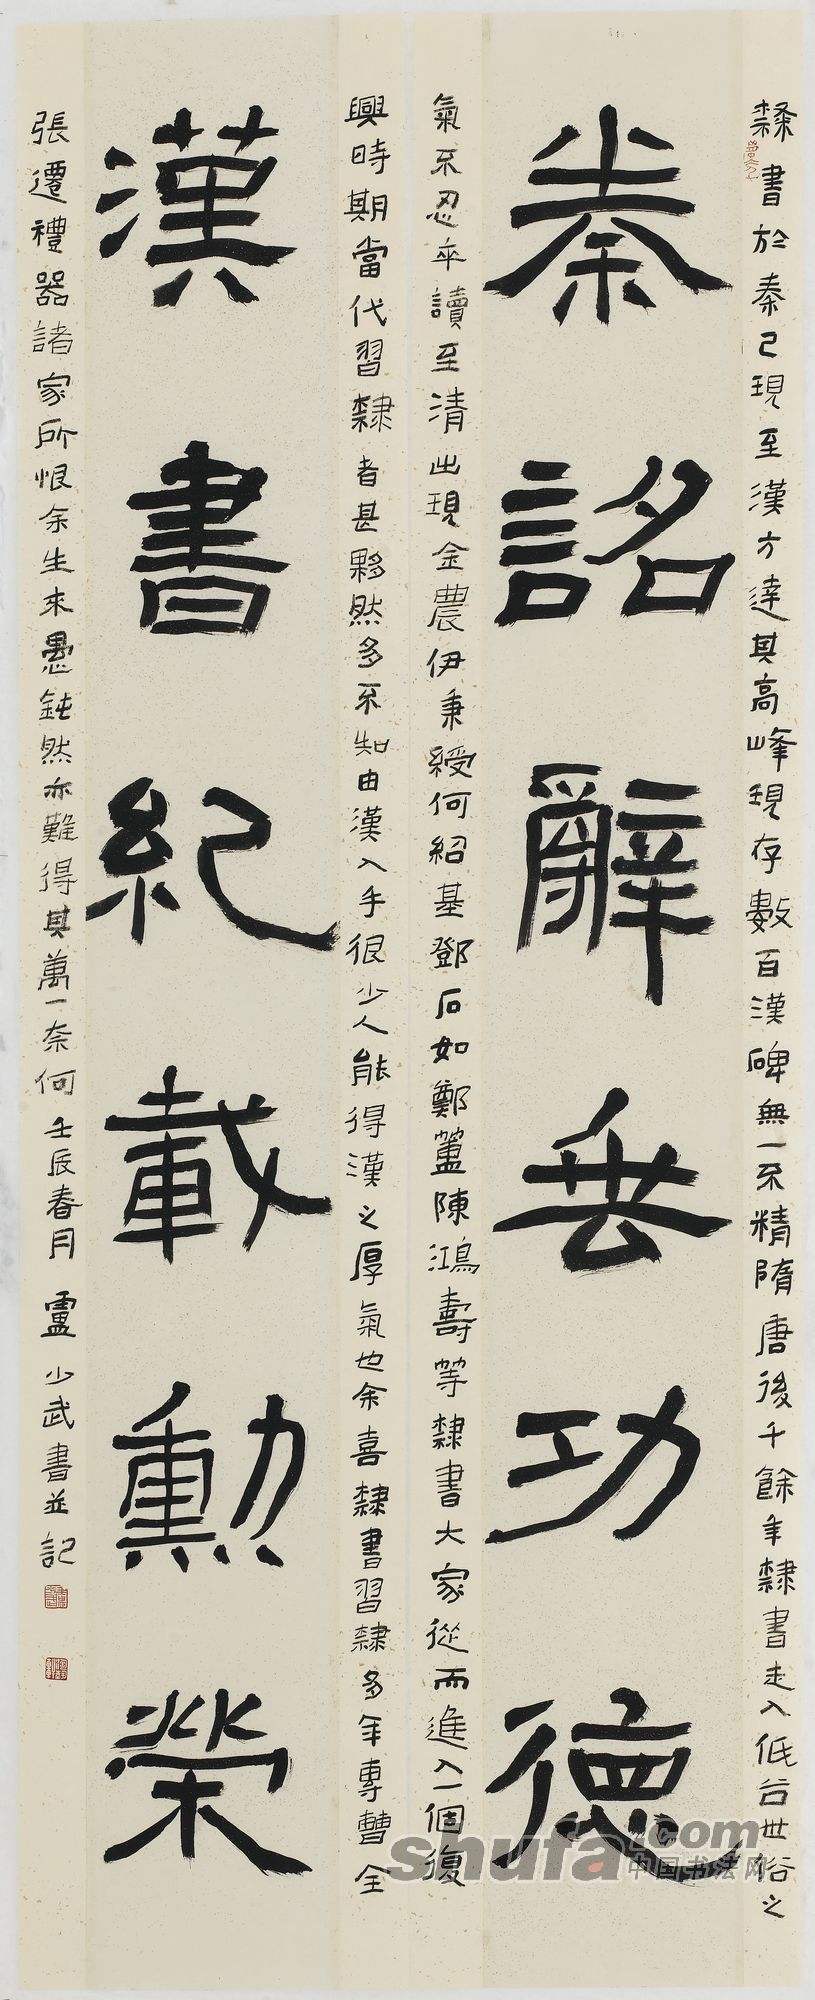 隸書於秦已現至漢方達其高峰現存數百漢碑無一不精隋唐後千餘年隸書走入低谷世俗之
秦詔辭垂功德
氣不忍卒讀至清出現金農伊秉綬何紹基鄧石如鄭簠陳鴻壽等隸書大家從而進入一個復
興時期當代習隸者甚夥然多不知由漢入手很少人能得漢之厚氣也余喜隸書習隸多年專曹全
漢書紀載勳榮
張遷禮器諸家所恨余生來愚鈍然亦難得其萬一奈何壬辰春月盧少武書並記
shufa.com
中国书法网